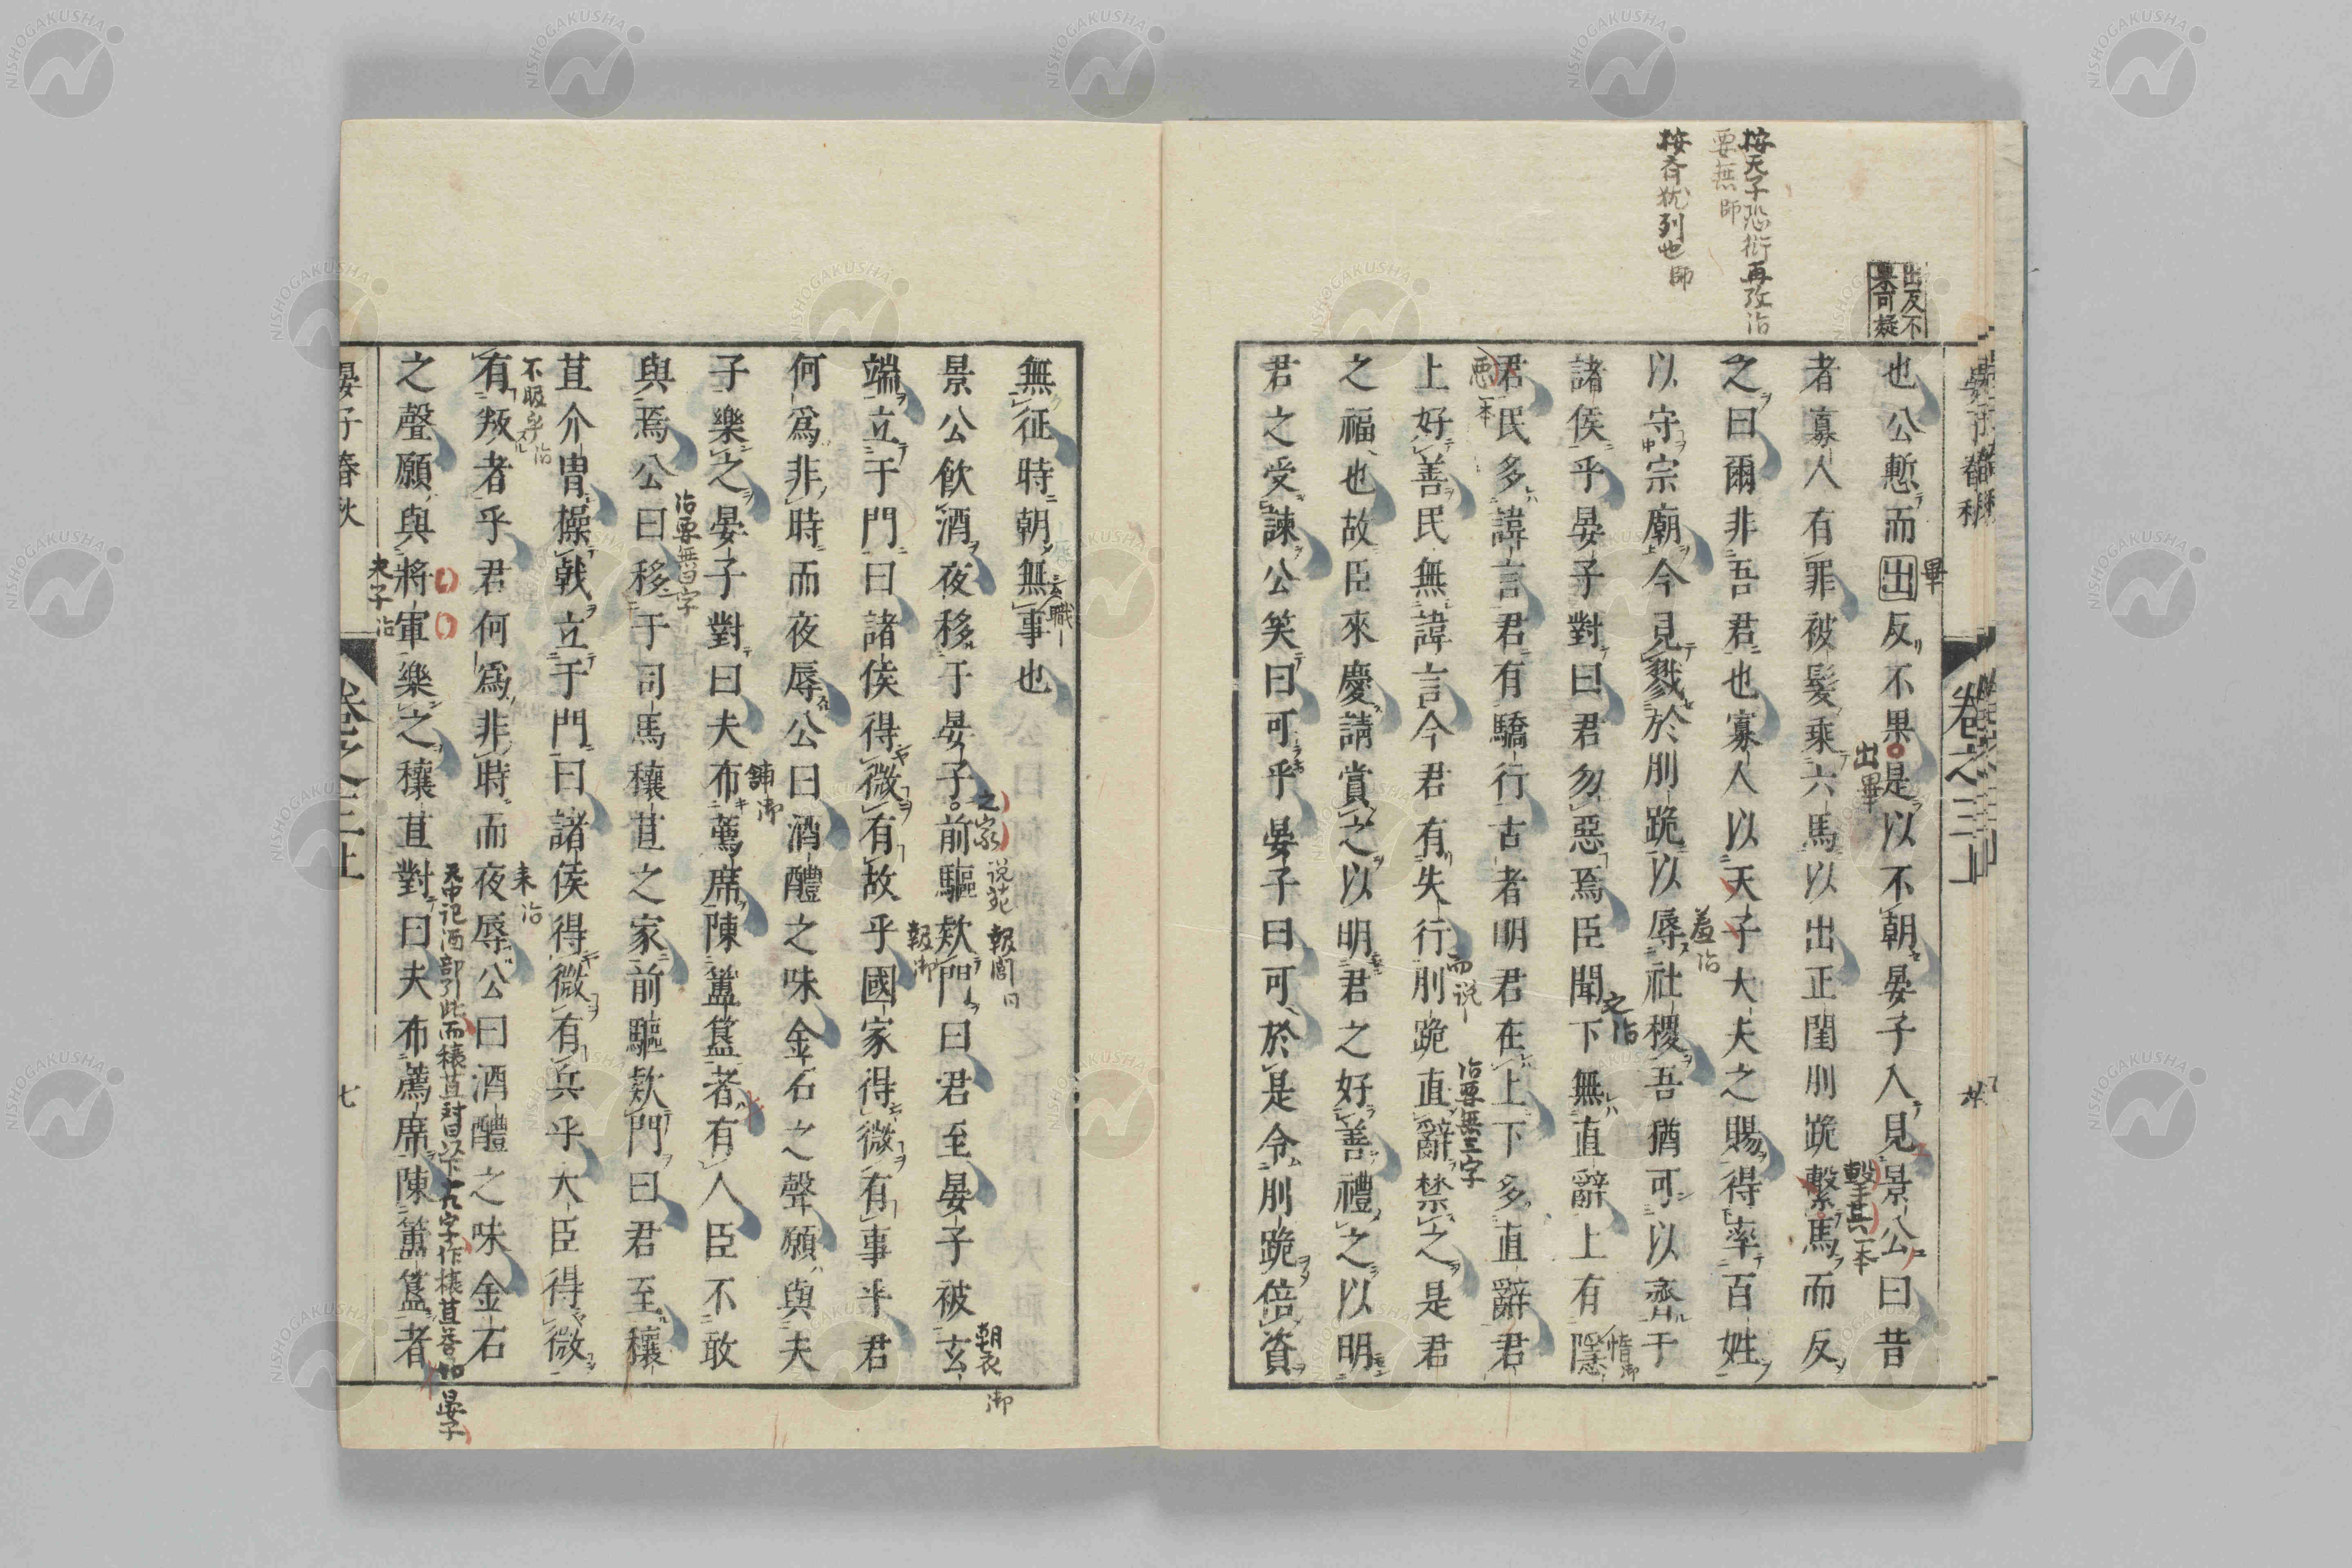 按天子恐衍再改治
要無 師
按齊犹列也 師
出反不
果可疑
晏子春秋
卷之三上
也公慙而出反不果是以不朝晏子入見景公曰昔
畢
出畢
者寡人有罪被髮乘六馬以出正閨刖跪繫馬而反
擊其 一本
之曰爾非吾君也寡人以天子大夫之賜得率百姓
以守宗廟今見戮於刖跪以辱社稷吾猶可以齊于
羞治
諸侯乎晏子對曰君勿惡焉臣聞下無直辭上有隱
之治
惰御
君民多諱言君有驕行古者明君在上下多直辭君
惡一本
上好善民無諱言今君有失行刖跪直辭禁之是君
而说
治要無三字
之福也故臣來慶請賞之以明君之好善禮之以明
君之受諫公笑曰可乎晏子曰可於是令刖跪倍資
無征時朝無事也
職
景公飲酒夜移于晏子前驅欵門曰君至晏子被玄
之家 说苑
報閭曰
朝衣 御
端立于門曰諸侯得微有故乎國家得微有事乎君
報御
何爲非時而夜辱公曰酒醴之味金石之聲願與夫
子樂之晏子對曰夫布薦席陳簠簋者有人臣不敢
舖御
與焉公曰移于司馬穰苴之家前驅欵門曰君至穰
治要無曰字
苴介冑操戟立于門曰諸侯得微有兵乎大臣得微
有叛者乎君何爲非時而夜辱公曰酒醴之味金石
不服乎 治
来治
之聲願與將軍樂之穰苴對曰夫布薦席陳簠簋者
夫子治
元中记酒部引此而穰苴対曰以下十九字作穰苴答如晏子
晏子春秋
卷之三上
七
NISHOGAKUSHA